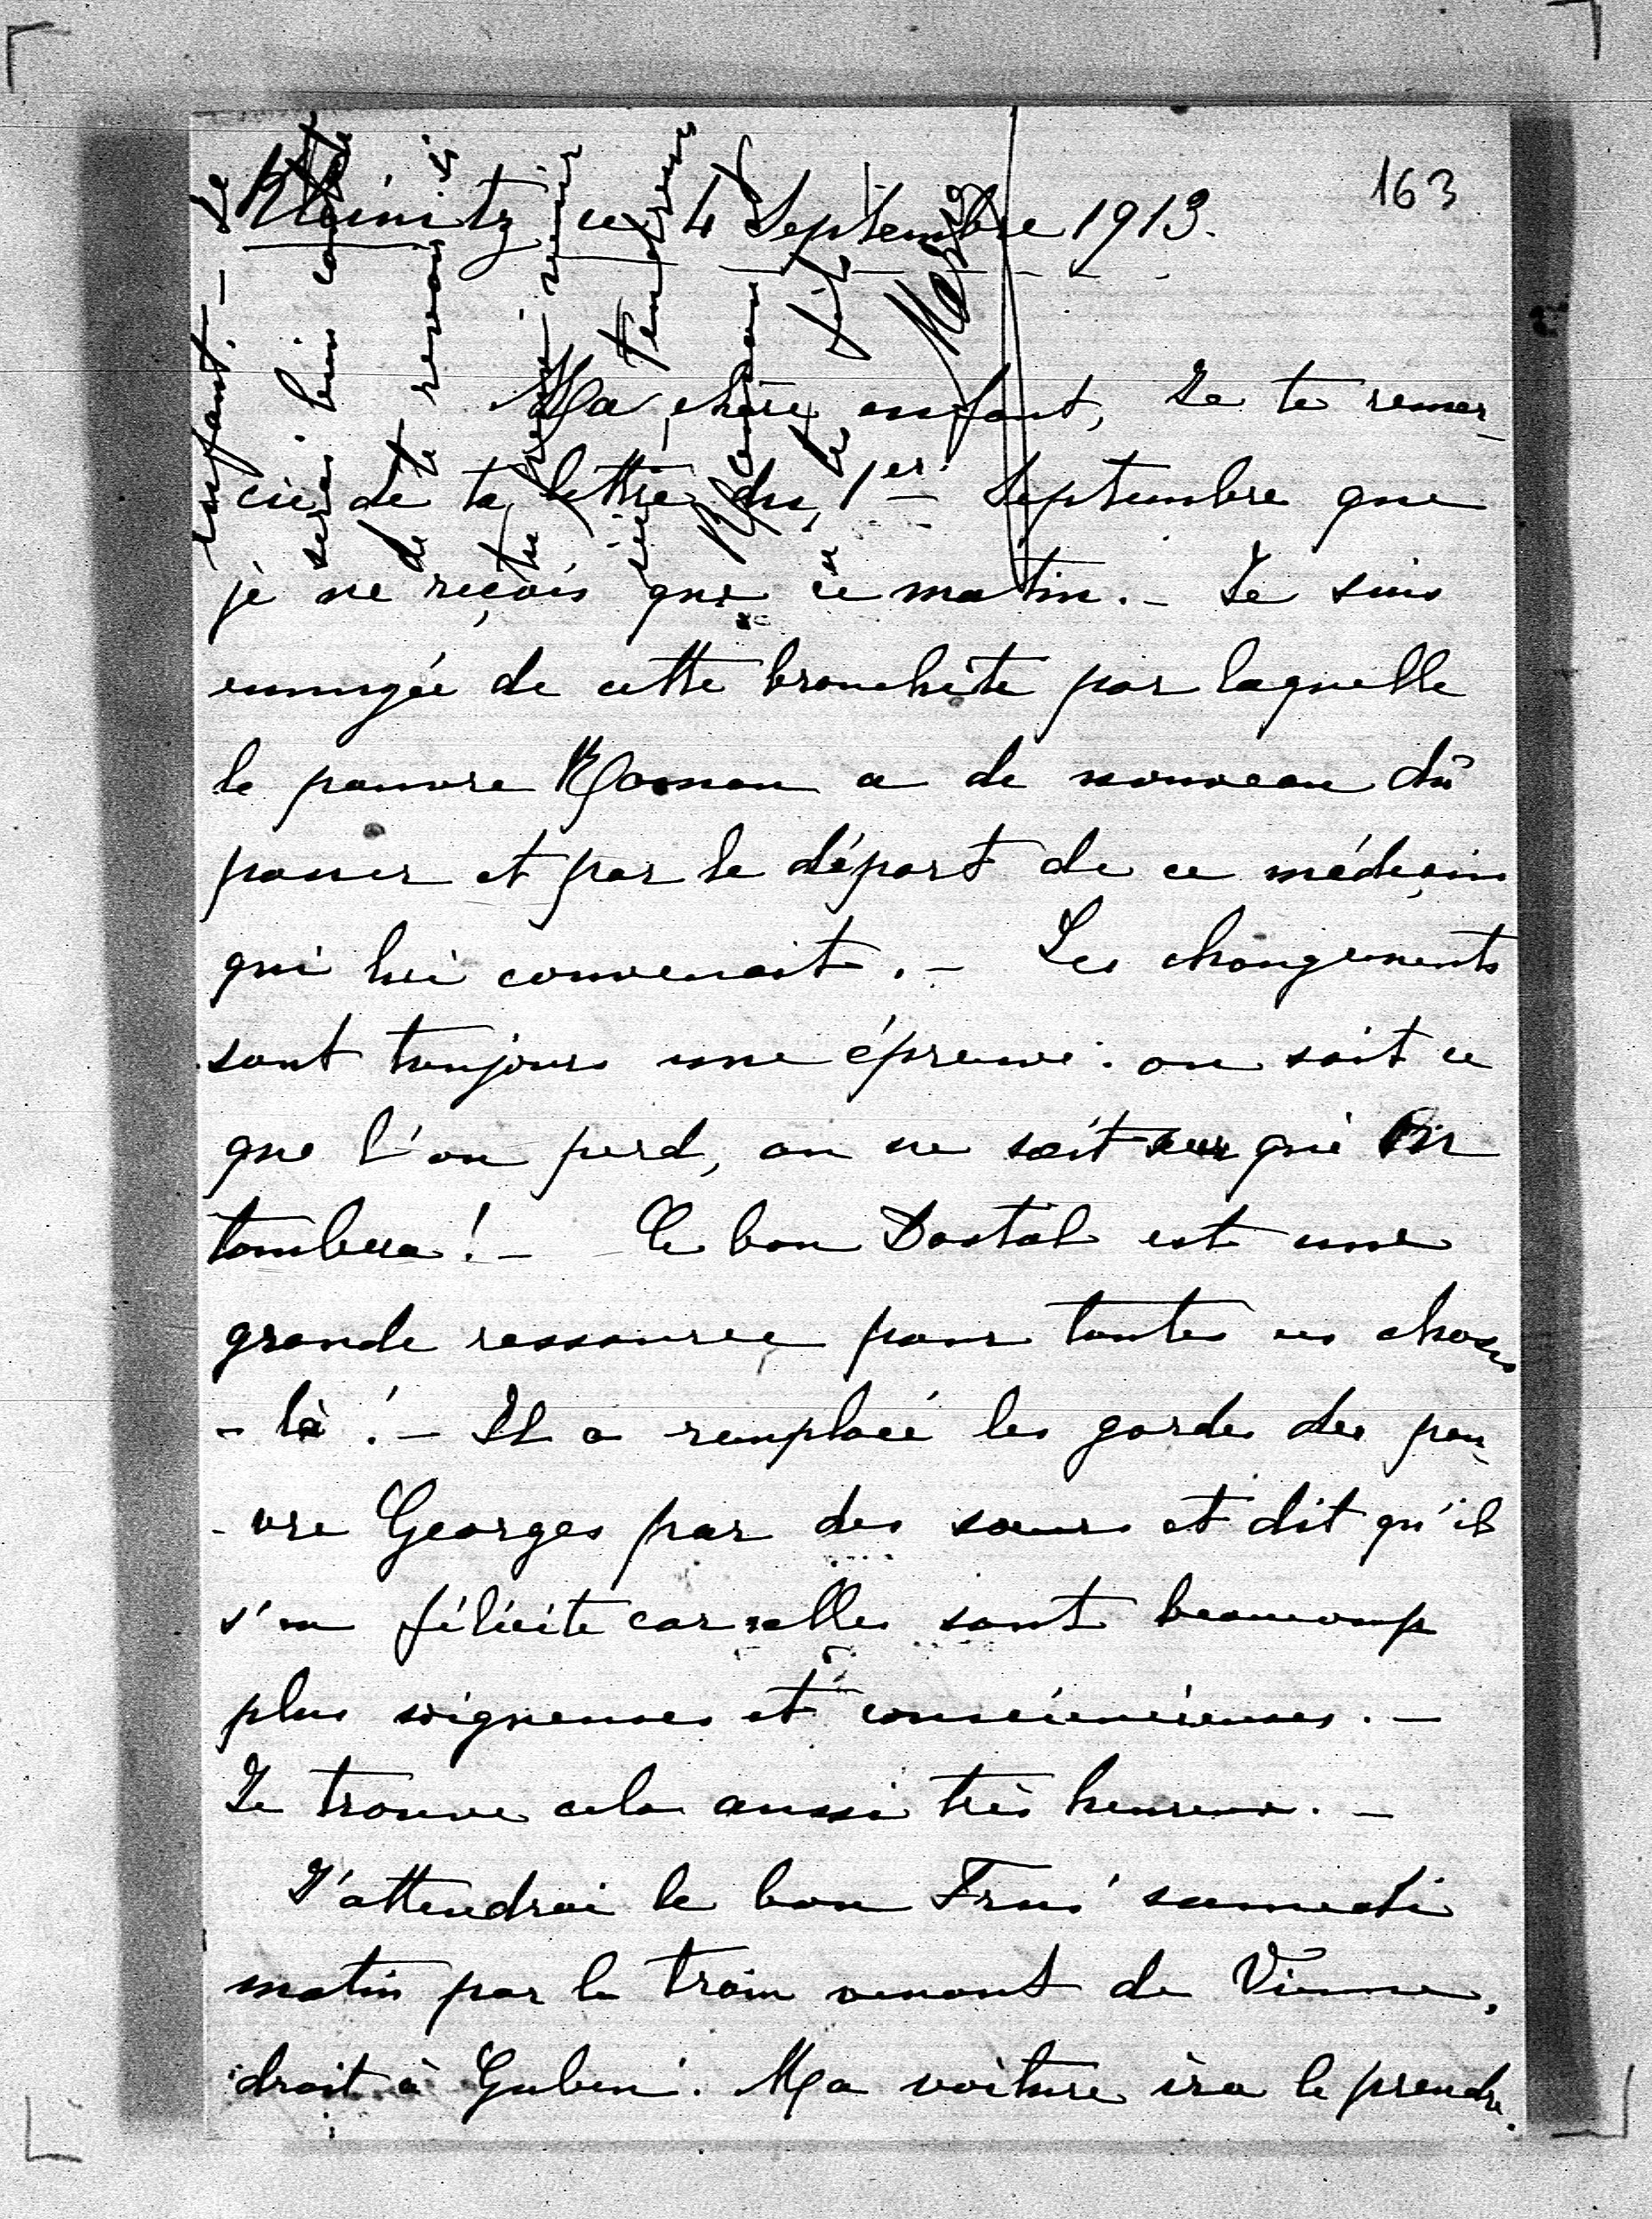 163
Kleinitz ce 4 Septembre 1913.
Ma chère enfant, Je te remer-
cie de ta lettre du 1er Septembre que
je ne reçois que ce matin. - Je suis
ennuyée de cette bronchite par laquelle
le pauvre Roman a de nouveau dû
passer et par le départ de ce médecin
qui lui convenait. - Les changements
sont toujours une épreuve: on sait ce
que l'on perd, on ne sait sur qui on
tombera! - Ce bon Dostal est une
grande ressource pour toutes ces choses
- là! - Il a remplacé les gardes du pau-
- vre Georges par des sœurs et dit qu'il
s'en félicite car elles sont beaucoup
plus soigneuses et consciencieuses. -
Je trouve cela aussi très heureux. -
J'attendrai le bon Fritz samedi
matin par le train venant de Vienne,
droit à Guben. Ma voiture ira le prendre.
enfant. - Je
serai bien
de te revoir
tu